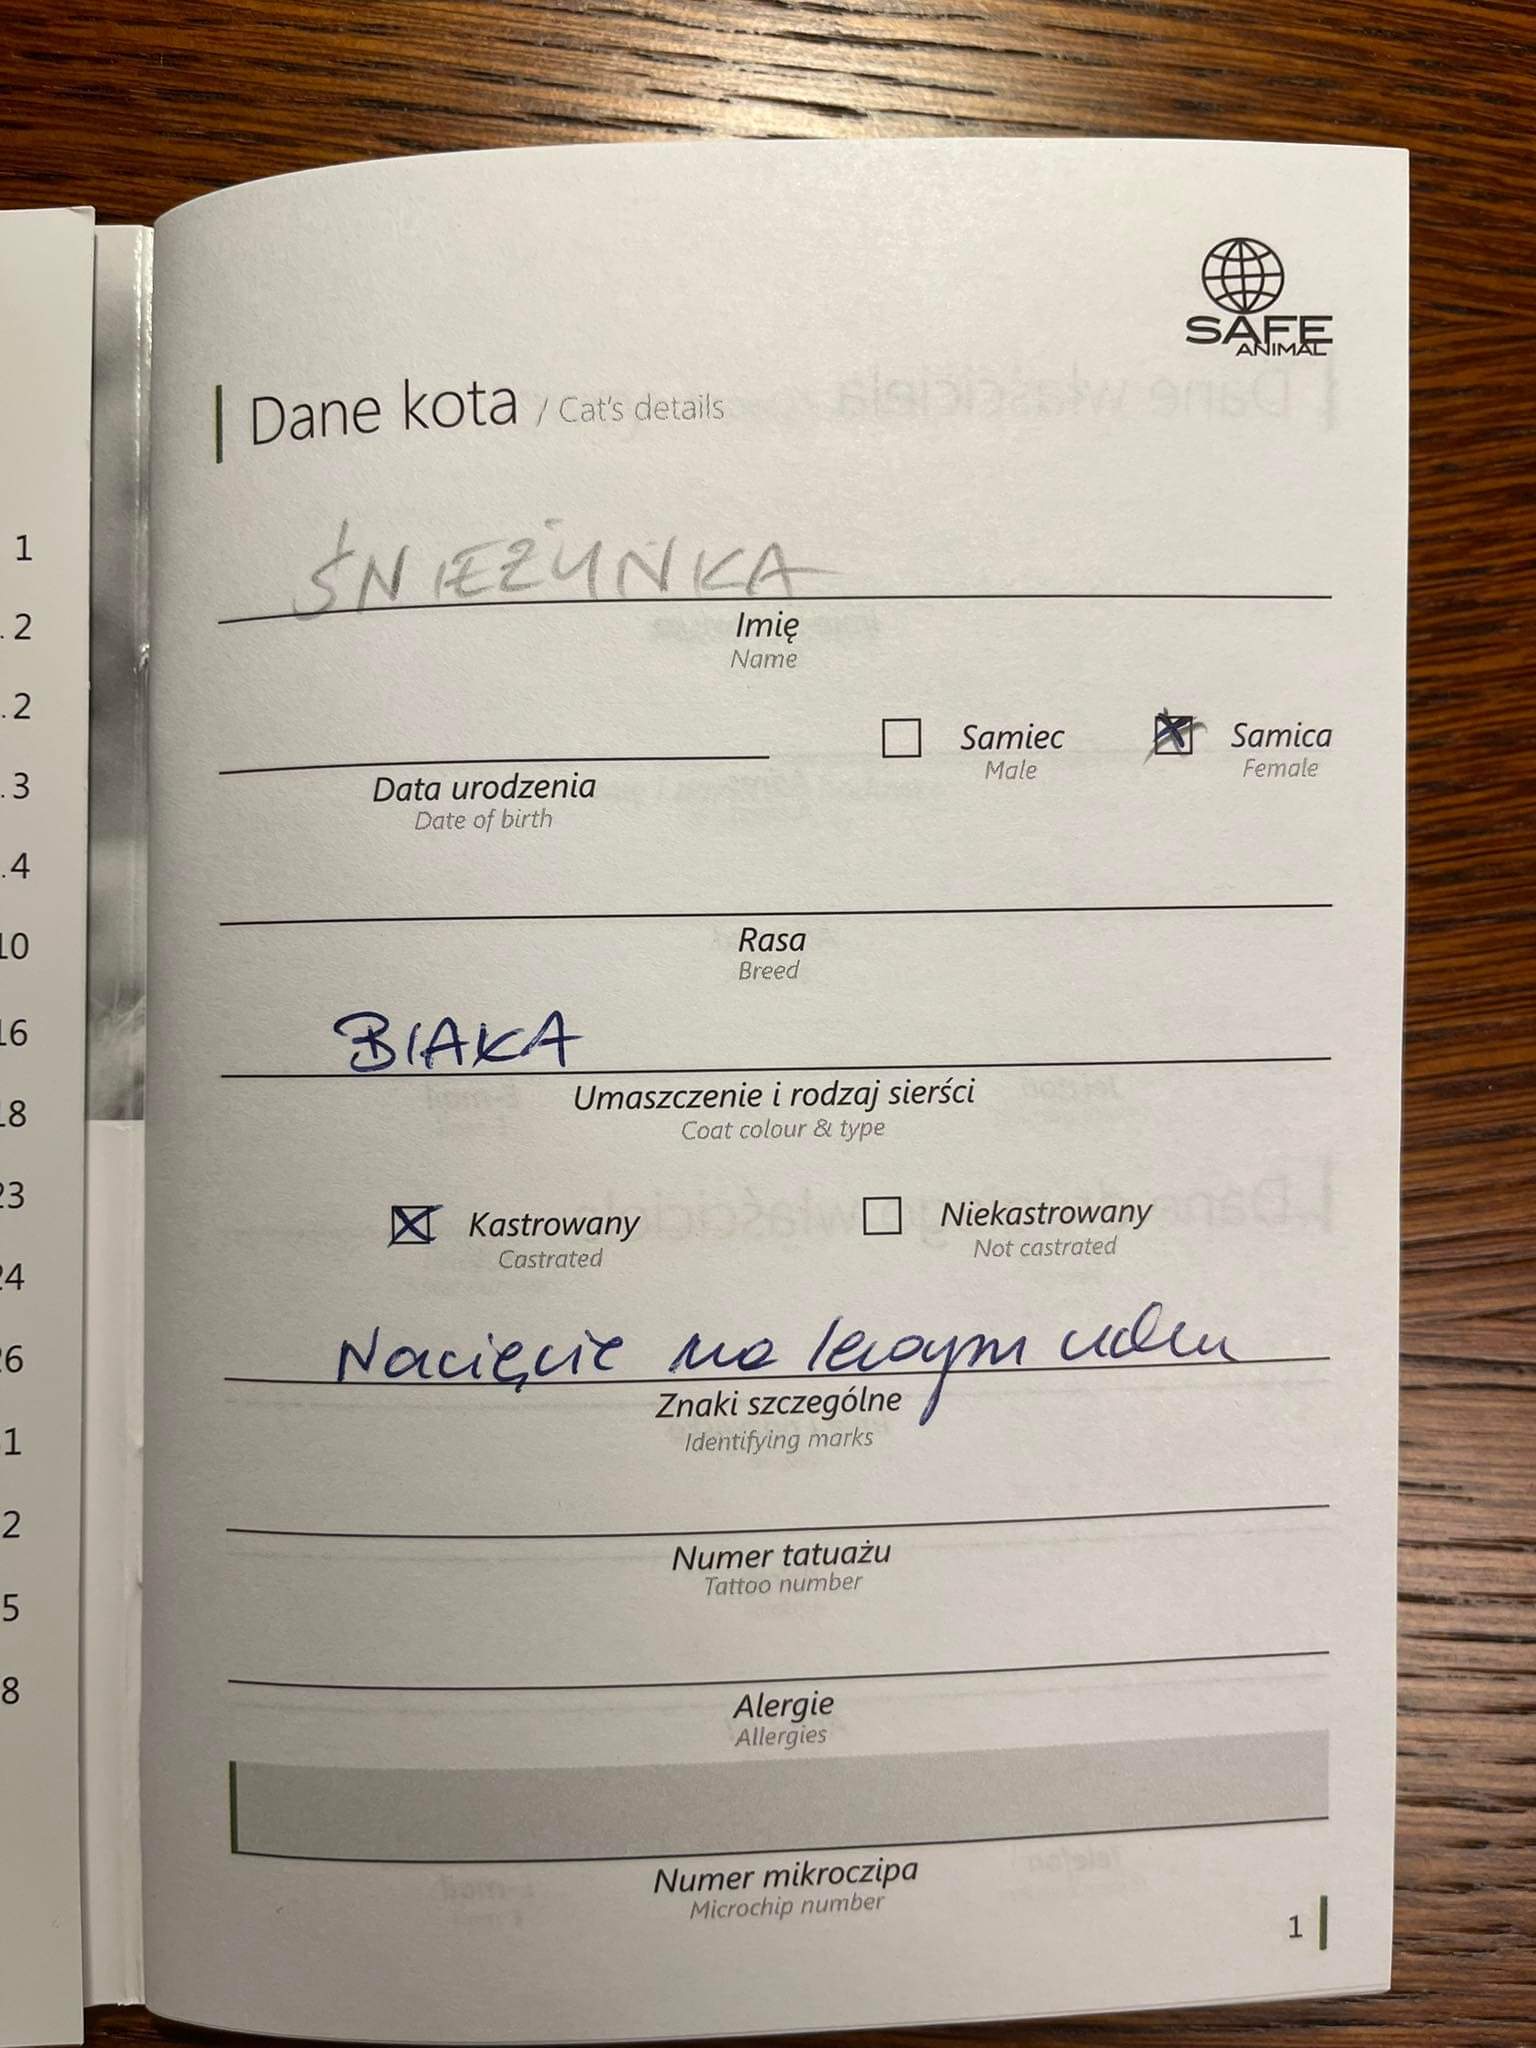 SAFE
ANIMAL
Dane kota / Cat's details
ŚNIEŻYNKA
Imię
Name
Samiec
Male
Samica
Female
Data urodzenia
Date of birth
Rasa
Breed
BIAŁA
Umaszczenie i rodzaj sierści
Coat colour & type
Kastrowany
Castrated
Niekastrowany
Not castrated
Nacięcie na lewym uchu
Znaki szczególne
Identifying marks
Numer tatuażu
Tattoo number
Alergie
Allergies
Numer mikroczipa
Microchip number
1
1
. 2
. 2
. 3
. 4
10
16
18
23
24
26
1
2
5
8